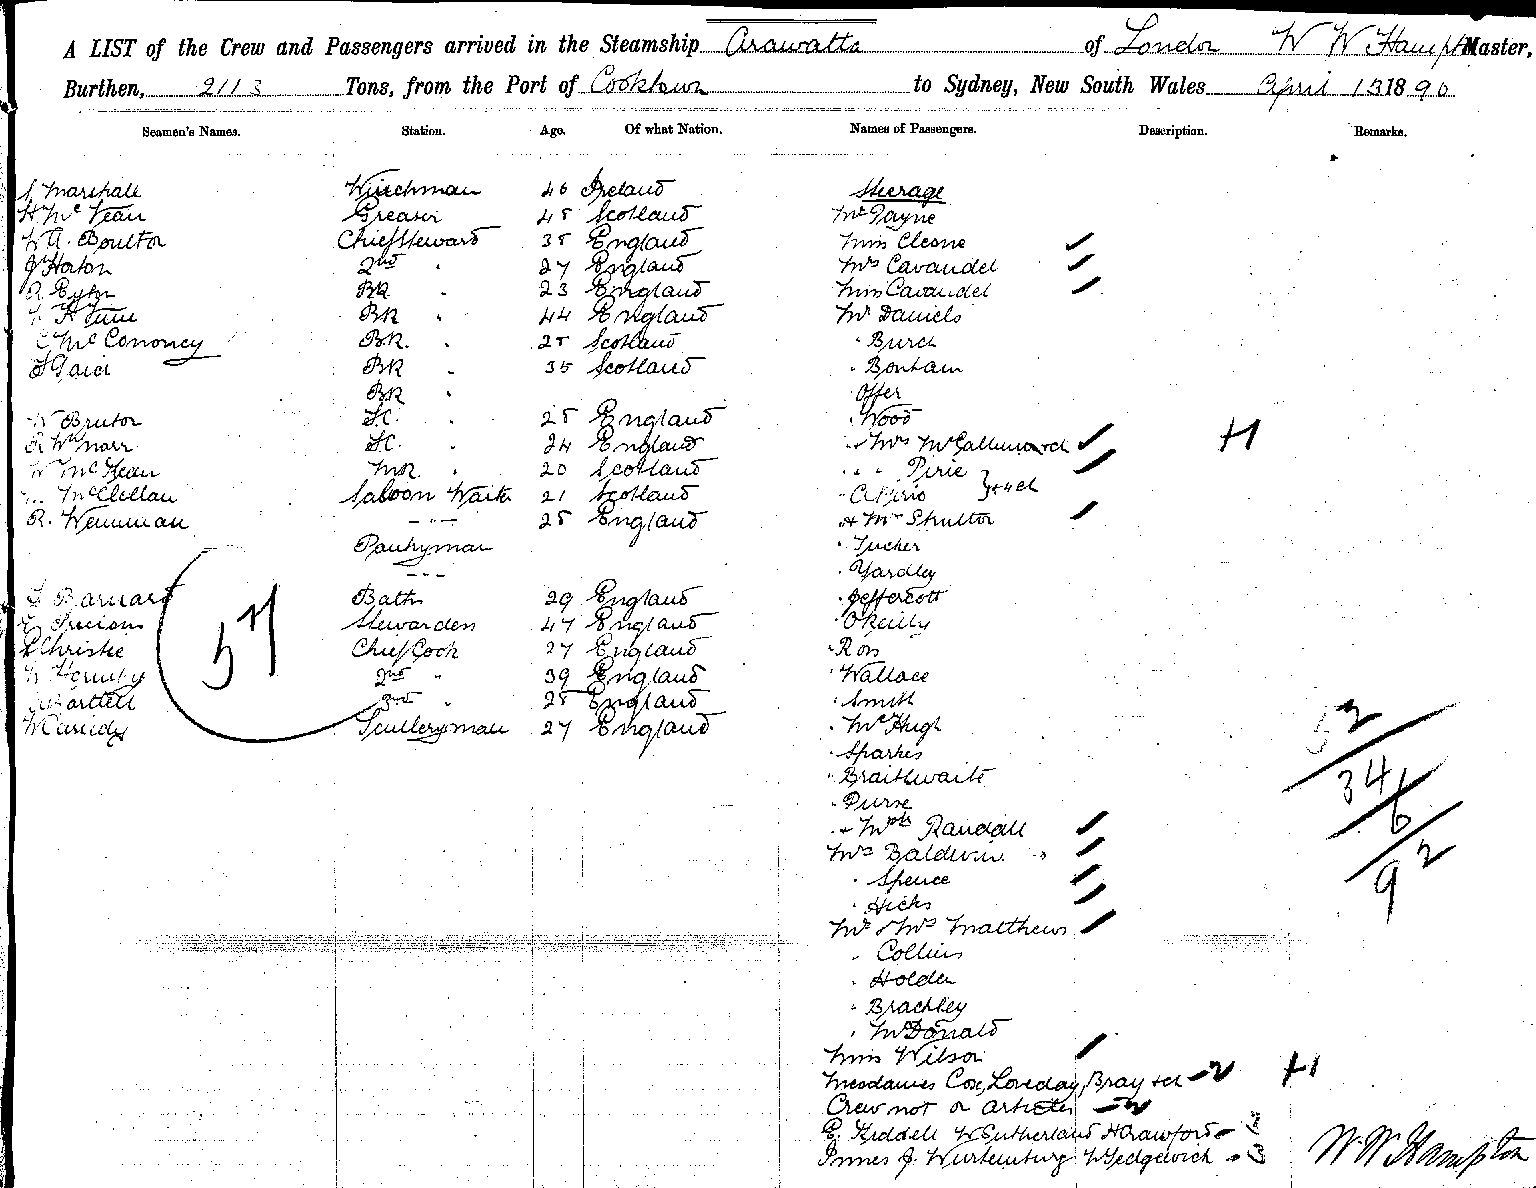 A LIST of the Crew and Passengers arrived in the Steamship Arawatta of London W W Hampton Master,
Burthen, 2113 Tons, from the Port of Cooktown to Sydney, New South Wales April 13 1890
Seamen's Names. Station. Age. Of what Nation. Names of Passengers. Description. Remarks.
S Marshall Winchman 46 Ireland Steerage
H Mc Vean Greaser 45 Scotland Mr Payne
W A. Boulton Chief Steward 35 England Miss Cleone
J Horton 2nd " 27 England Mrs Cavandel
R BR " 23 England Miss Cavandel
W Hume BR " 44 England Mr Daniels
C Mc Cononcy BR. " 25 Scotland " Burch
BR " 35 Scotland " Bonham
BR " " Offer
W Bruton S.C. " 25 England " Wood
R S.C. " 24 England " Mrs McCallum
W McKean M.R. " 20 Scotland " " " Pirie
McClellan Saloon Waiter 21 Scotland
R. Wenman - " - 25 England + Mrs Shutton
Pantryman " Tucher
" Yardley
Barnard Baths 29 England " Jeffercott
E Precious Stewardess 47 England " O'Reilly
57
Christie Chief Cook 27 England " Ross
W Hornby 2nd " 39 England " Wallace
Bartlett 3rd 25 England " Smith
W Cassidy Sculleryman 27 England " McHugh
52
" Sparkes
" Braithwaite
34
" Purse
6
" + Mrs Randall
Mrs Baldwin "
92
" Spence
" Hicks
Mr & Mrs Matthews
" Collins
" Holder
" Brachley
" McDonald
Miss Wilson
Mesdames Cox, Loveday, Bray + ch - 2 +1
Crew not on articles
E. Kiddell W Sutherland H Crawford
Innes J. Wurtemburg W Sedgewich
W. W. Hampton